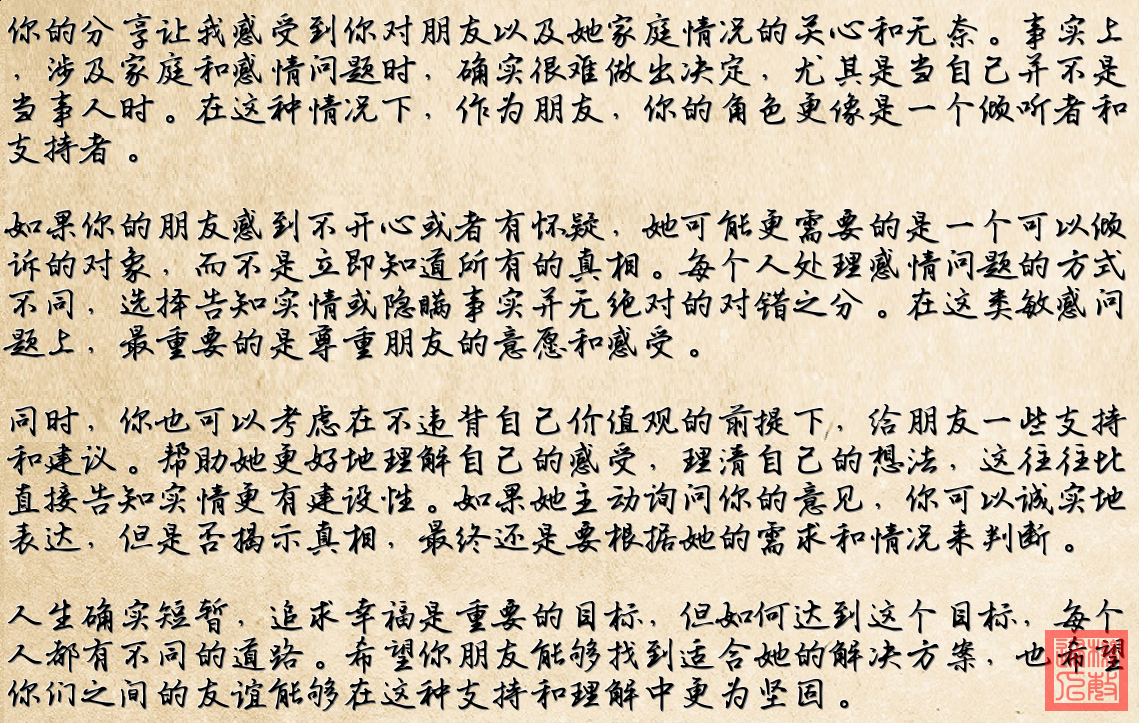 你的分享让我感受到你对朋友以及她家庭情况的关心和无奈。事实上
，涉及家庭和感情问题时，确实很难做出决定，尤其是当自己并不是
当事人时。在这种情况下，作为朋友，你的角色更像是一个倾听者和
支持者。
如果你的朋友感到不开心或者有怀疑，她可能更需要的是一个可以倾
诉的对象，而不是立即知道所有的真相。每个人处理感情问题的方式
不同，选择告知实情或隐瞒事实并无绝对的对错之分。在这类敏感问
题上，最重要的是尊重朋友的意愿和感受。
同时，你也可以考虑在不违背自己价值观的前提下，给朋友一些支持
和建议。帮助她更好地理解自己的感受，理清自己的想法，这往往比
直接告知实情更有建设性。如果她主动询问你的意见，你可以诚实地
表达，但是否揭示真相，最终还是要根据她的需求和情况来判断。
人生确实短暂，追求幸福是重要的目标，但如何达到这个目标，每个
人都有不同的道路。希望你朋友能够找到适合她的解决方案，也希望
你们之间的友谊能够在这种支持和理解中更为坚固。